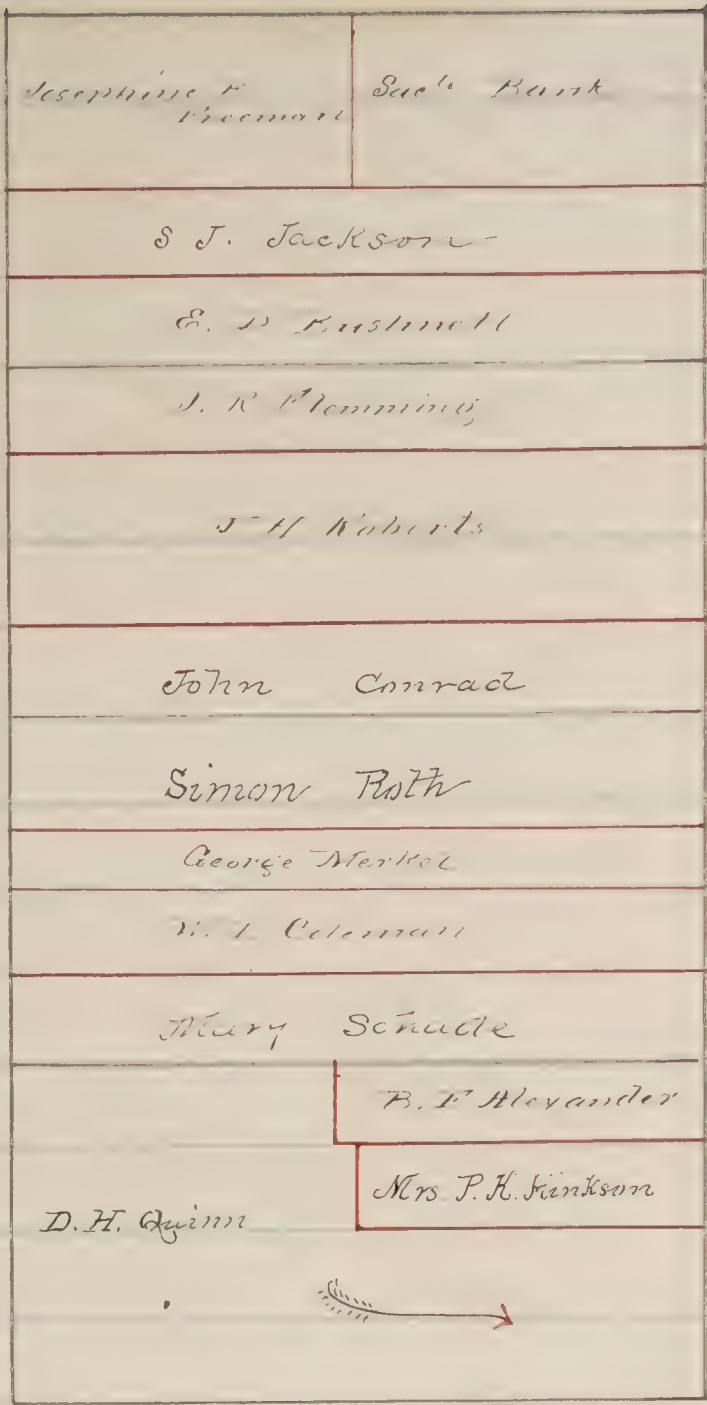 Josephine F
Freeman
Sac'to Bank
S J. Jackson
E. D Bushnell
J. R Flemming
J H Roberts
John Conrad
Simon Roth
George Merkel
W. L Coleman
Mary Schade
B. F Alexander
Mrs P. K. Hinkson
D. H. Quinn